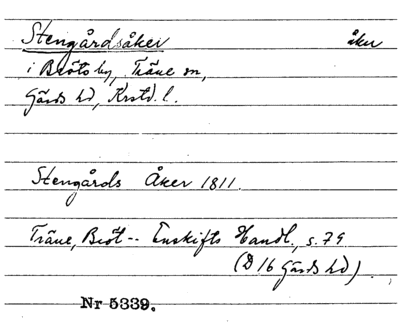 Stengårdsåker åker
i Bröts by, Träne sn,
Gärds hd, Krstd. l.
Stengårds Åker 1811.
Träne, Bröt -- Enskifts Handl., s. 79
(D 16 Gärds hd).
Nr 5339.